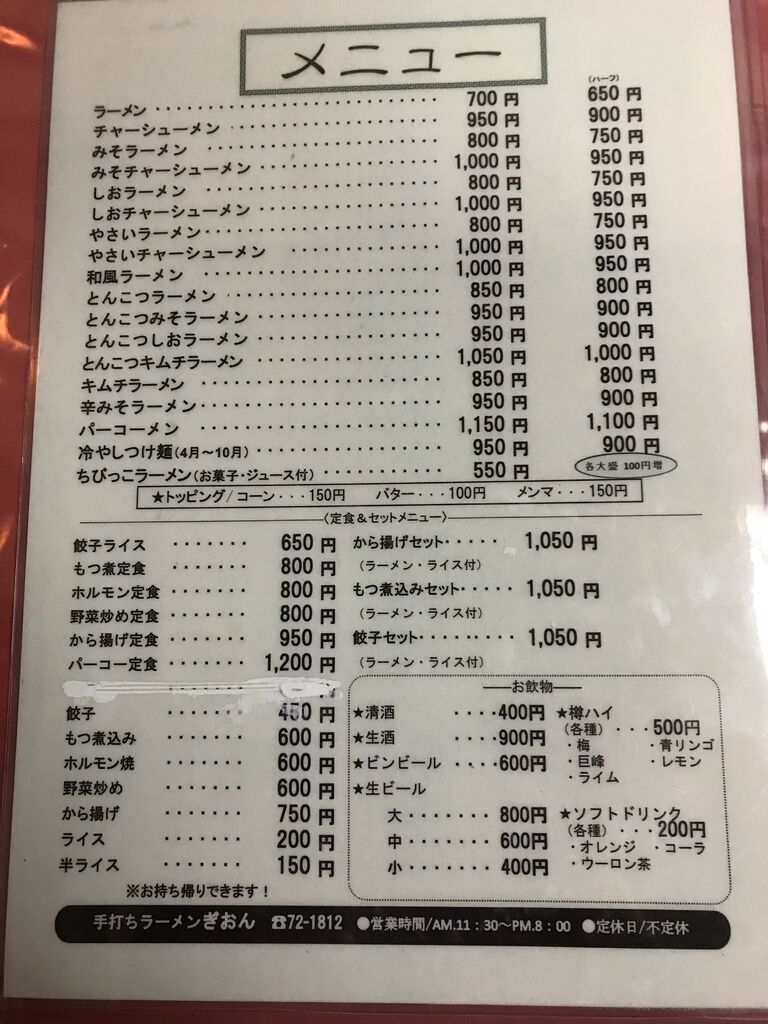 メニュー
(ハーフ)
ラーメン・・・・・・・・・・・・・・・・・・・・・・・ 700円 650円
チャーシューメン・・・・・・・・・・・・・・・・・・ 950円 900円
みそラーメン・・・・・・・・・・・・・・・・・・・・ 800円 750円
みそチャーシューメン・・・・・・・・・・・・・・・ 1,000円 950円
しおラーメン・・・・・・・・・・・・・・・・・・・・ 800円 750円
しおチャーシューメン・・・・・・・・・・・・・・・ 1,000円 950円
やさいラーメン・・・・・・・・・・・・・・・・・・・ 800円 750円
やさいチャーシューメン・・・・・・・・・・・・・ 1,000円 950円
和風ラーメン・・・・・・・・・・・・・・・・・・・・ 1,000円 950円
とんこつラーメン・・・・・・・・・・・・・・・・・・ 850円 800円
とんこつみそラーメン・・・・・・・・・・・・・・・ 950円 900円
とんこつしおラーメン・・・・・・・・・・・・・・・ 950円 900円
とんこつキムチラーメン・・・・・・・・・・・・・・ 1,050円 1,000円
キムチラーメン・・・・・・・・・・・・・・・・・・・ 850円 800円
辛みそラーメン・・・・・・・・・・・・・・・・・・・ 950円 900円
パーコーメン・・・・・・・・・・・・・・・・・・・・ 1,150円 1,100円
冷やしつけ麺(4月～10月)・・・・・・・・・・・・・・ 950円 900円
ちびっこラーメン(お菓子・ジュース付)・・・・・・・・ 550円 各大盛 100円増
★トッピング/コーン・・・150円 バター・・・100円 メンマ・・・150円
〈定食&セットメニュー〉
餃子ライス・・・・・・・ 650円
もつ煮定食・・・・・・・ 800円
ホルモン定食・・・・・・ 800円
野菜炒め定食・・・・・・ 800円
から揚げ定食・・・・・・ 950円
パーコー定食・・・・・・ 1,200円
から揚げセット・・・・・ 1,050円
(ラーメン・ライス付)
もつ煮込みセット・・・・ 1,050円
(ラーメン・ライス付)
餃子セット・・・・・・・ 1,050円
(ラーメン・ライス付)
餃子・・・・・・・ 450円
もつ煮込み・・・・・・・ 600円
ホルモン焼・・・・・・・ 600円
野菜炒め・・・・・・・ 600円
から揚げ・・・・・・・ 750円
ライス・・・・・・・ 200円
半ライス・・・・・・・ 150円
※お持ち帰りできます！
お飲物
★清酒・・・・400円
★生酒・・・・900円
★ビンビール・・・・600円
★生ビール
大・・・・・・・800円
中・・・・・・・600円
小・・・・・・・400円
★樽ハイ
(各種)・・・500円
・梅 ・青リンゴ
・巨峰 ・レモン
・ライム
★ソフトドリンク
(各種)・・・200円
・オレンジ ・コーラ
・ウーロン茶
手打ちラーメンぎおん ☎72-1812 ●営業時間/AM.11：30～PM.8：00 ●定休日/不定休